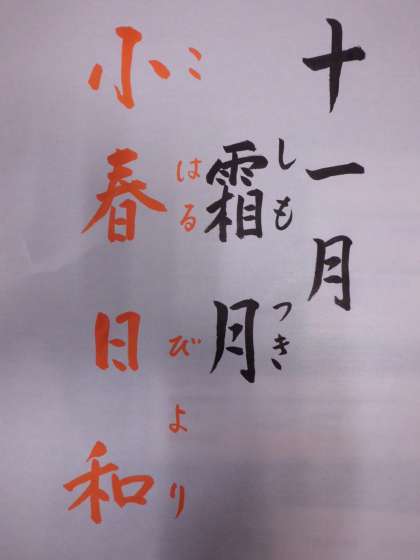 十一月
しもつき
霜月
こはるびより
小春日和